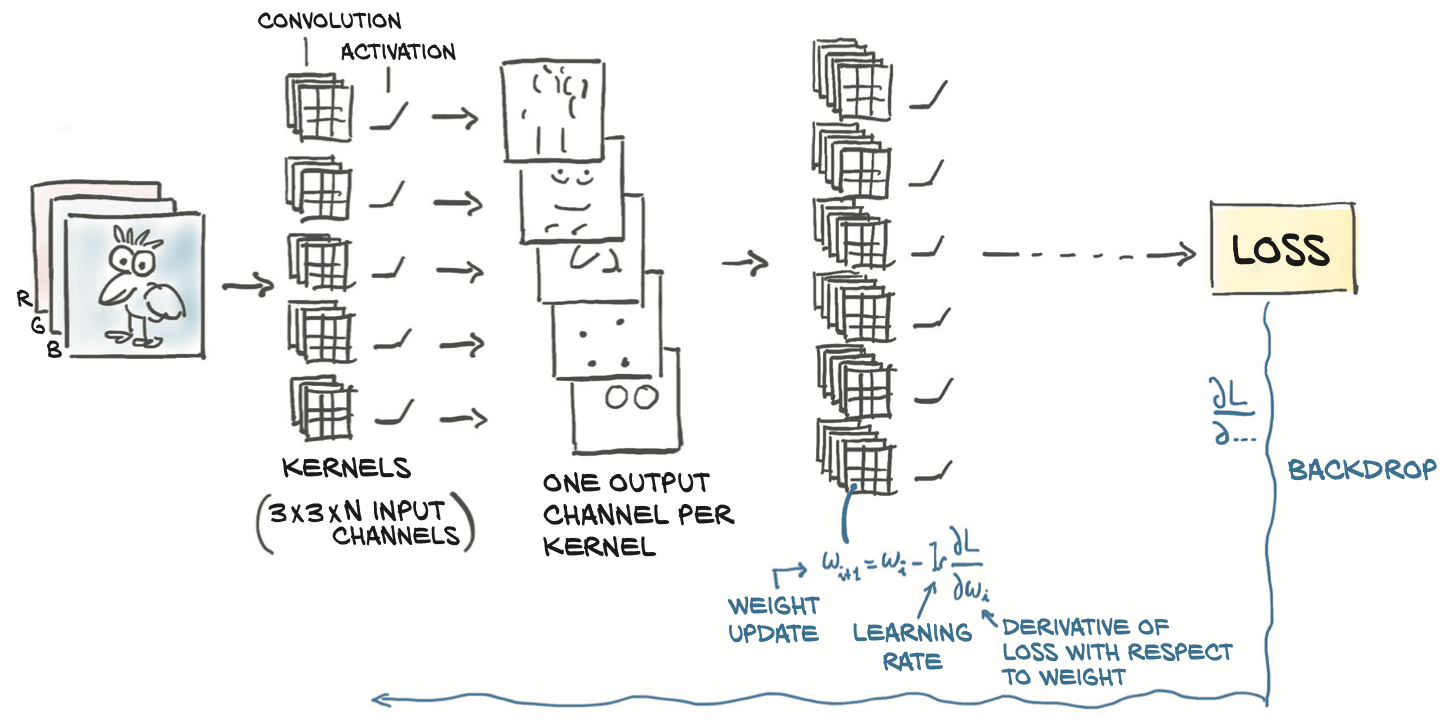 CONVOLUTION
ACTIVATION
R
G
B
KERNELS
(3x3xN INPUT
CHANNELS)
ONE OUTPUT
CHANNEL PER
KERNEL
LOSS
∂L
∂...
BACKDROP
ω_{i+1} = ω_i - lr ∂L/∂ω_i
WEIGHT
UPDATE
LEARNING
RATE
DERIVATIVE OF
LOSS WITH RESPECT
TO WEIGHT